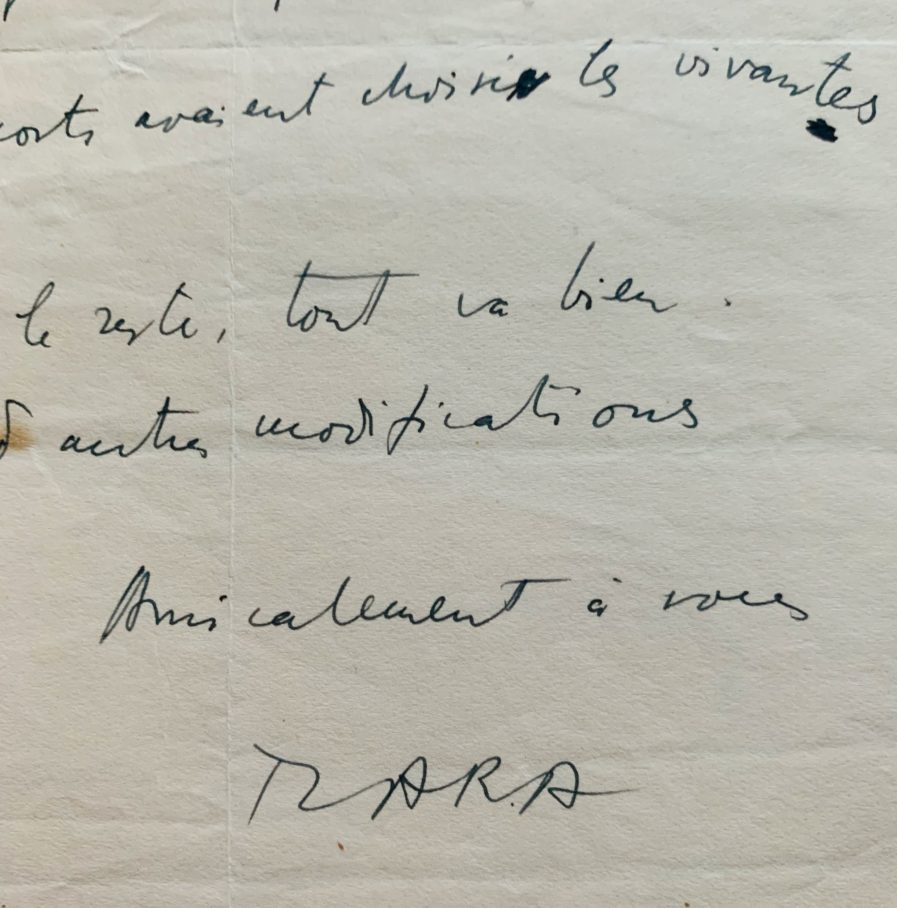 orts avaient choisi les vivantes
le reste, tout va bien.
d'autres modifications
Amicalement à vous
TZARA